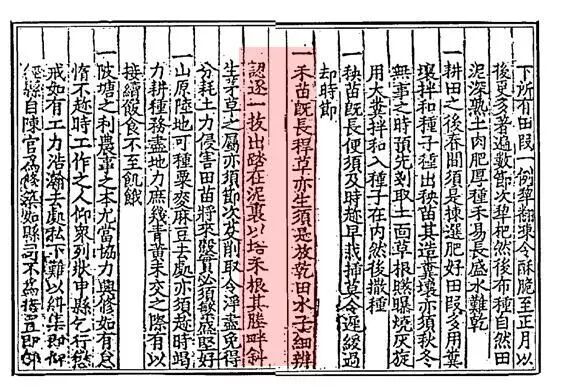 下所有田段一例犂翻凍令酥脆至正月以
後更多著遍數節次犂杷然後布種自然田
泥深熟土肉肥厚種禾易長盛水難乾
一耕田之後春間須是揀選肥好田段多用糞
壤拌和種子種出秧苗其造糞壤亦須秋冬
無事之時預先剗取土面草根曬曝燒灰旋
用大糞拌和入種子在內然後撒種
一秧苗既長便須及時趂早栽插莫令遲緩過
却時節
一禾苗既長稈草亦生須是放乾田水子細辨
認逐一拔出踏在泥裏以培禾根其塍畔斜
生茅草之屬亦須節次芟削取令淨盡免得
分耗土力侵害田苗將來穀實必須繁盛堅好
一山原陸地可種粟麥麻豆去處亦須趂時竭
力耕種務盡地力庶幾青黃未交之際有以
接續飲食不至飢餓
一陂塘之利農事之本尤當協力興修如有怠
惰不趂時工作之人仰衆列狀申縣乞行懲
戒如有工力浩瀚去處私下難以糾集即仰
經縣自陳官爲修築如縣司不爲措置即仰